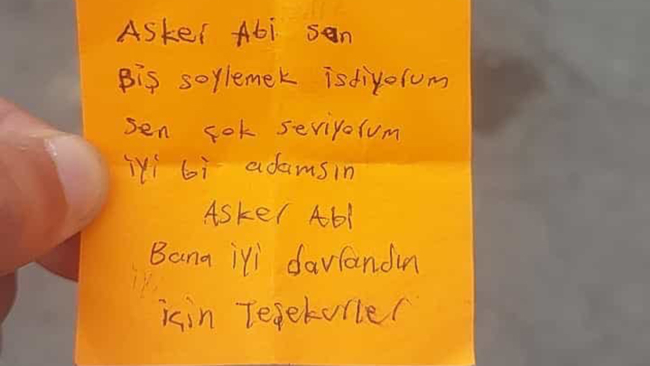 Asker Abi sen
Biş soylemek isdiyorum
sen çok seviyorum
iyi bi adamsın
Asker Abi
Bana iyi davrandın
için Teşekurler